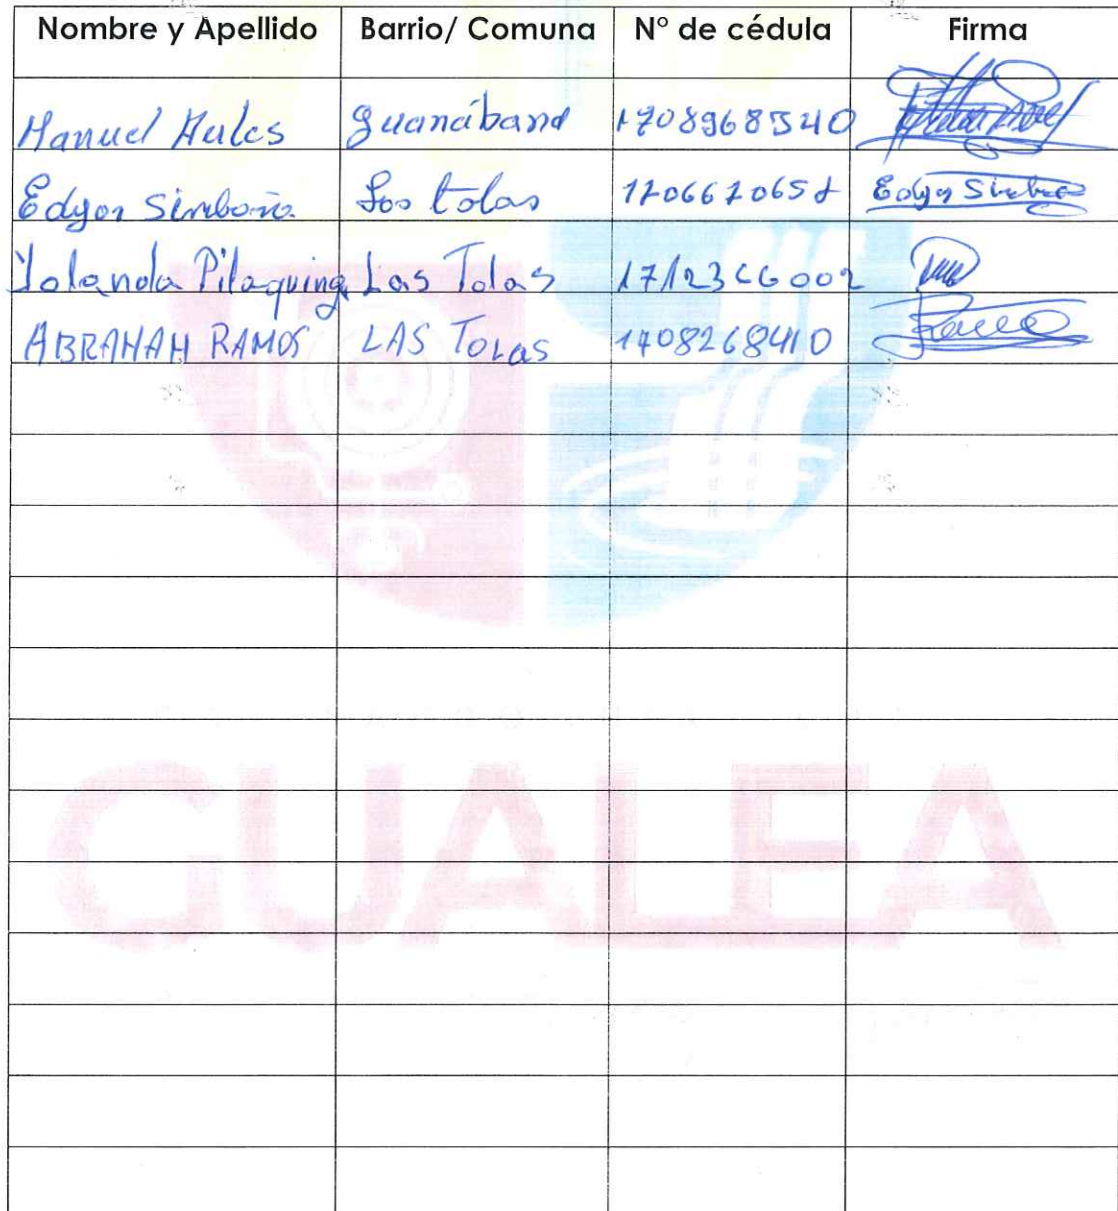 Nombre y Apellido Barrio/ Comuna N° de cédula Firma
Manuel Hules guanábana 1708968540
Edgar Simbaña Las tolas Edgar Simba
Yolanda Pilaquinga Las Tolas
ABRAHAM RAMOS LAS TOLAS 1708268410
GUALEA